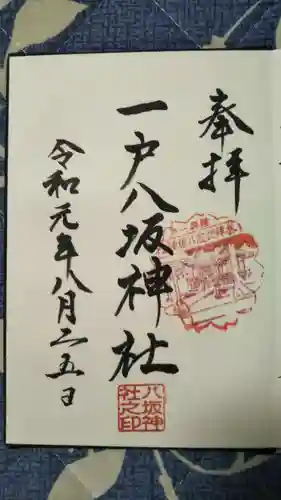 奉拝
一戸八坂神社
令和元年八月二五日
八坂神
社之印